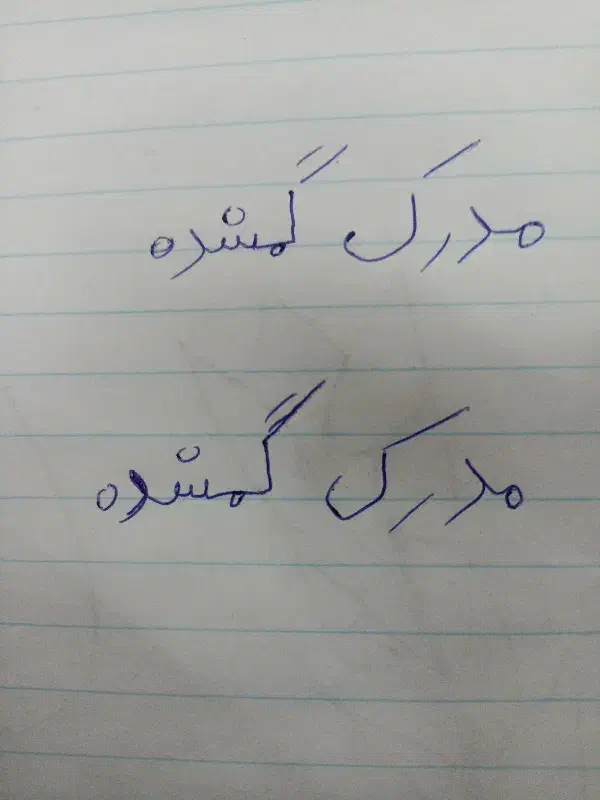 مدرک گمشده
مدرک گمشده